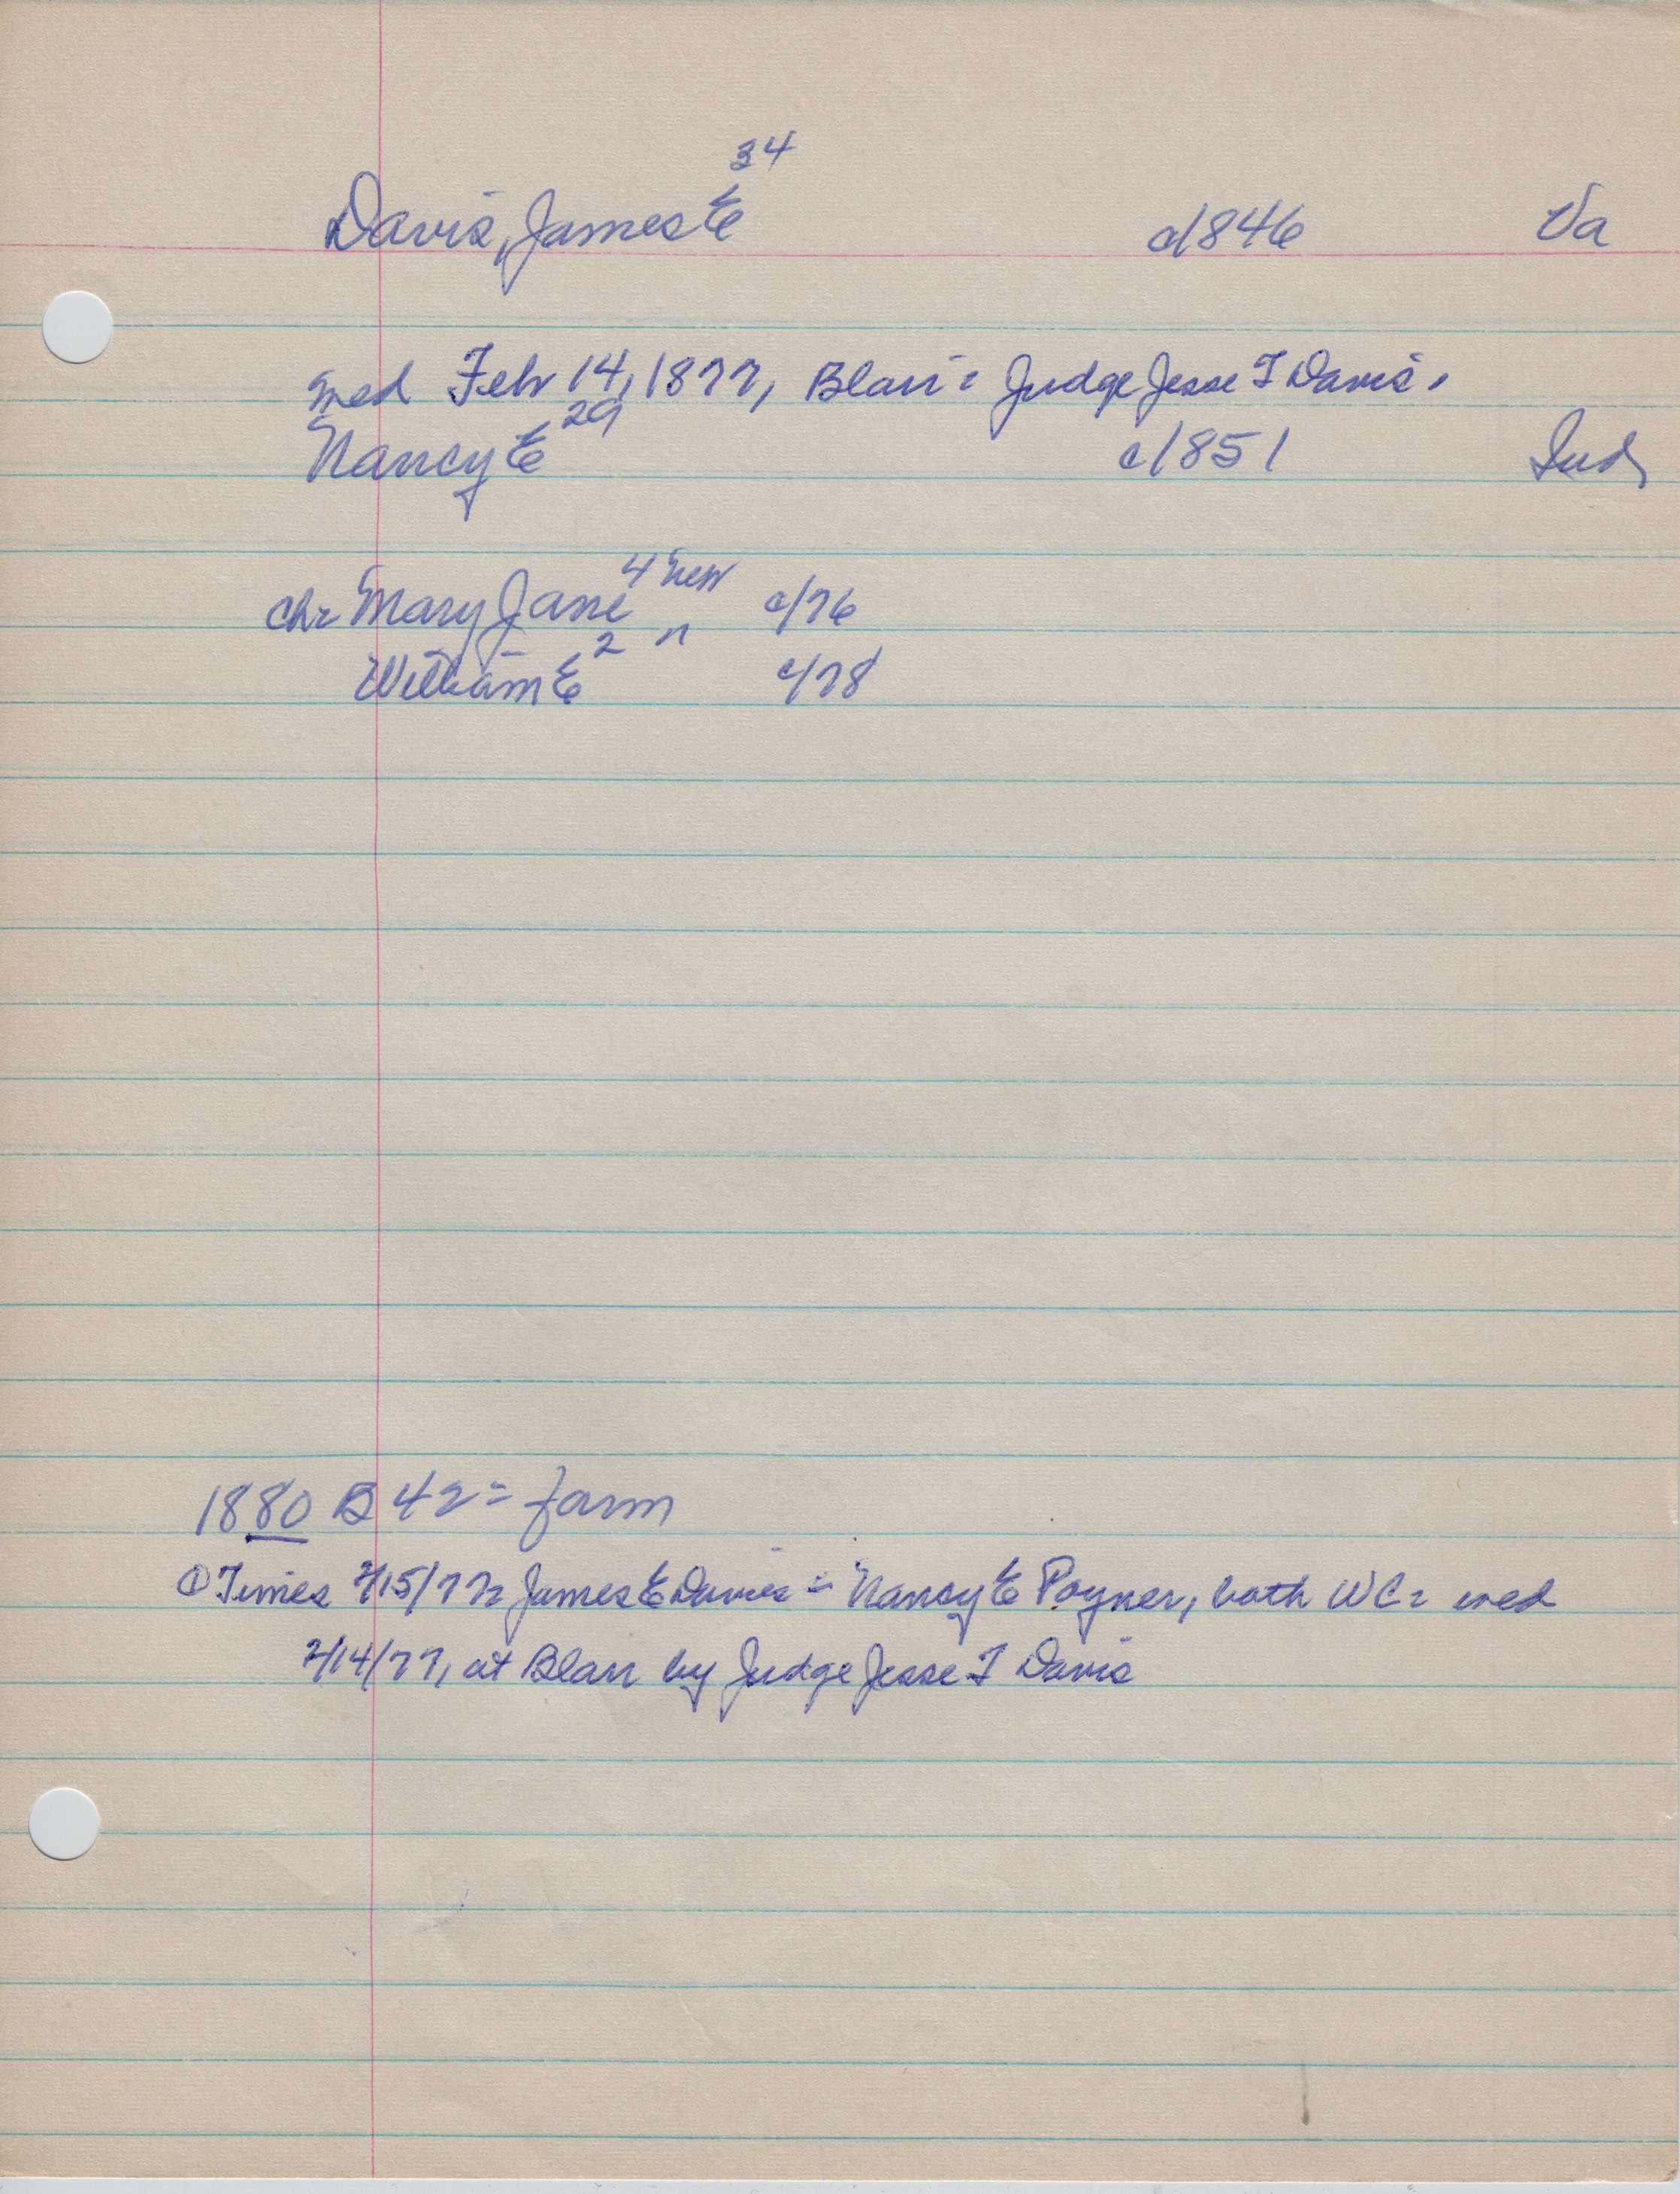 Davis, James E 34 c1846 Va
med Feb 14, 1877, Blair = Judge Jesse T Davis.
Nancy E 29 c1851 Ind
Chr Mary Jane 4 Neb c/76
William E 2 " c/78
1880 B 42 = farm
① Times 2/15/77: James E Davis = Nancy E Poyner, both WC: wed
2/14/77, at Blair by Judge Jesse T Davis